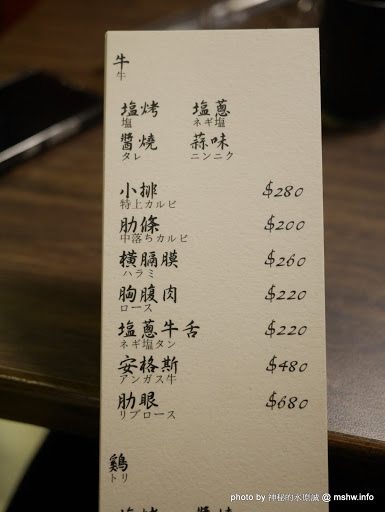 牛
牛
塩烤 塩蔥
塩 ネギ塩
醬燒 蒜味
タレ ニンニク
小排 $280
特上カルビ
肋條 $200
中落ちカルビ
橫膈膜 $260
ハラミ
胸腹肉 $220
ロース
塩蔥牛舌 $220
ネギ塩タン
安格斯 $480
アンガス牛
肋眼 $680
リブロース
鷄
トリ
photo by 神秘的水原誠 @ mshw.info